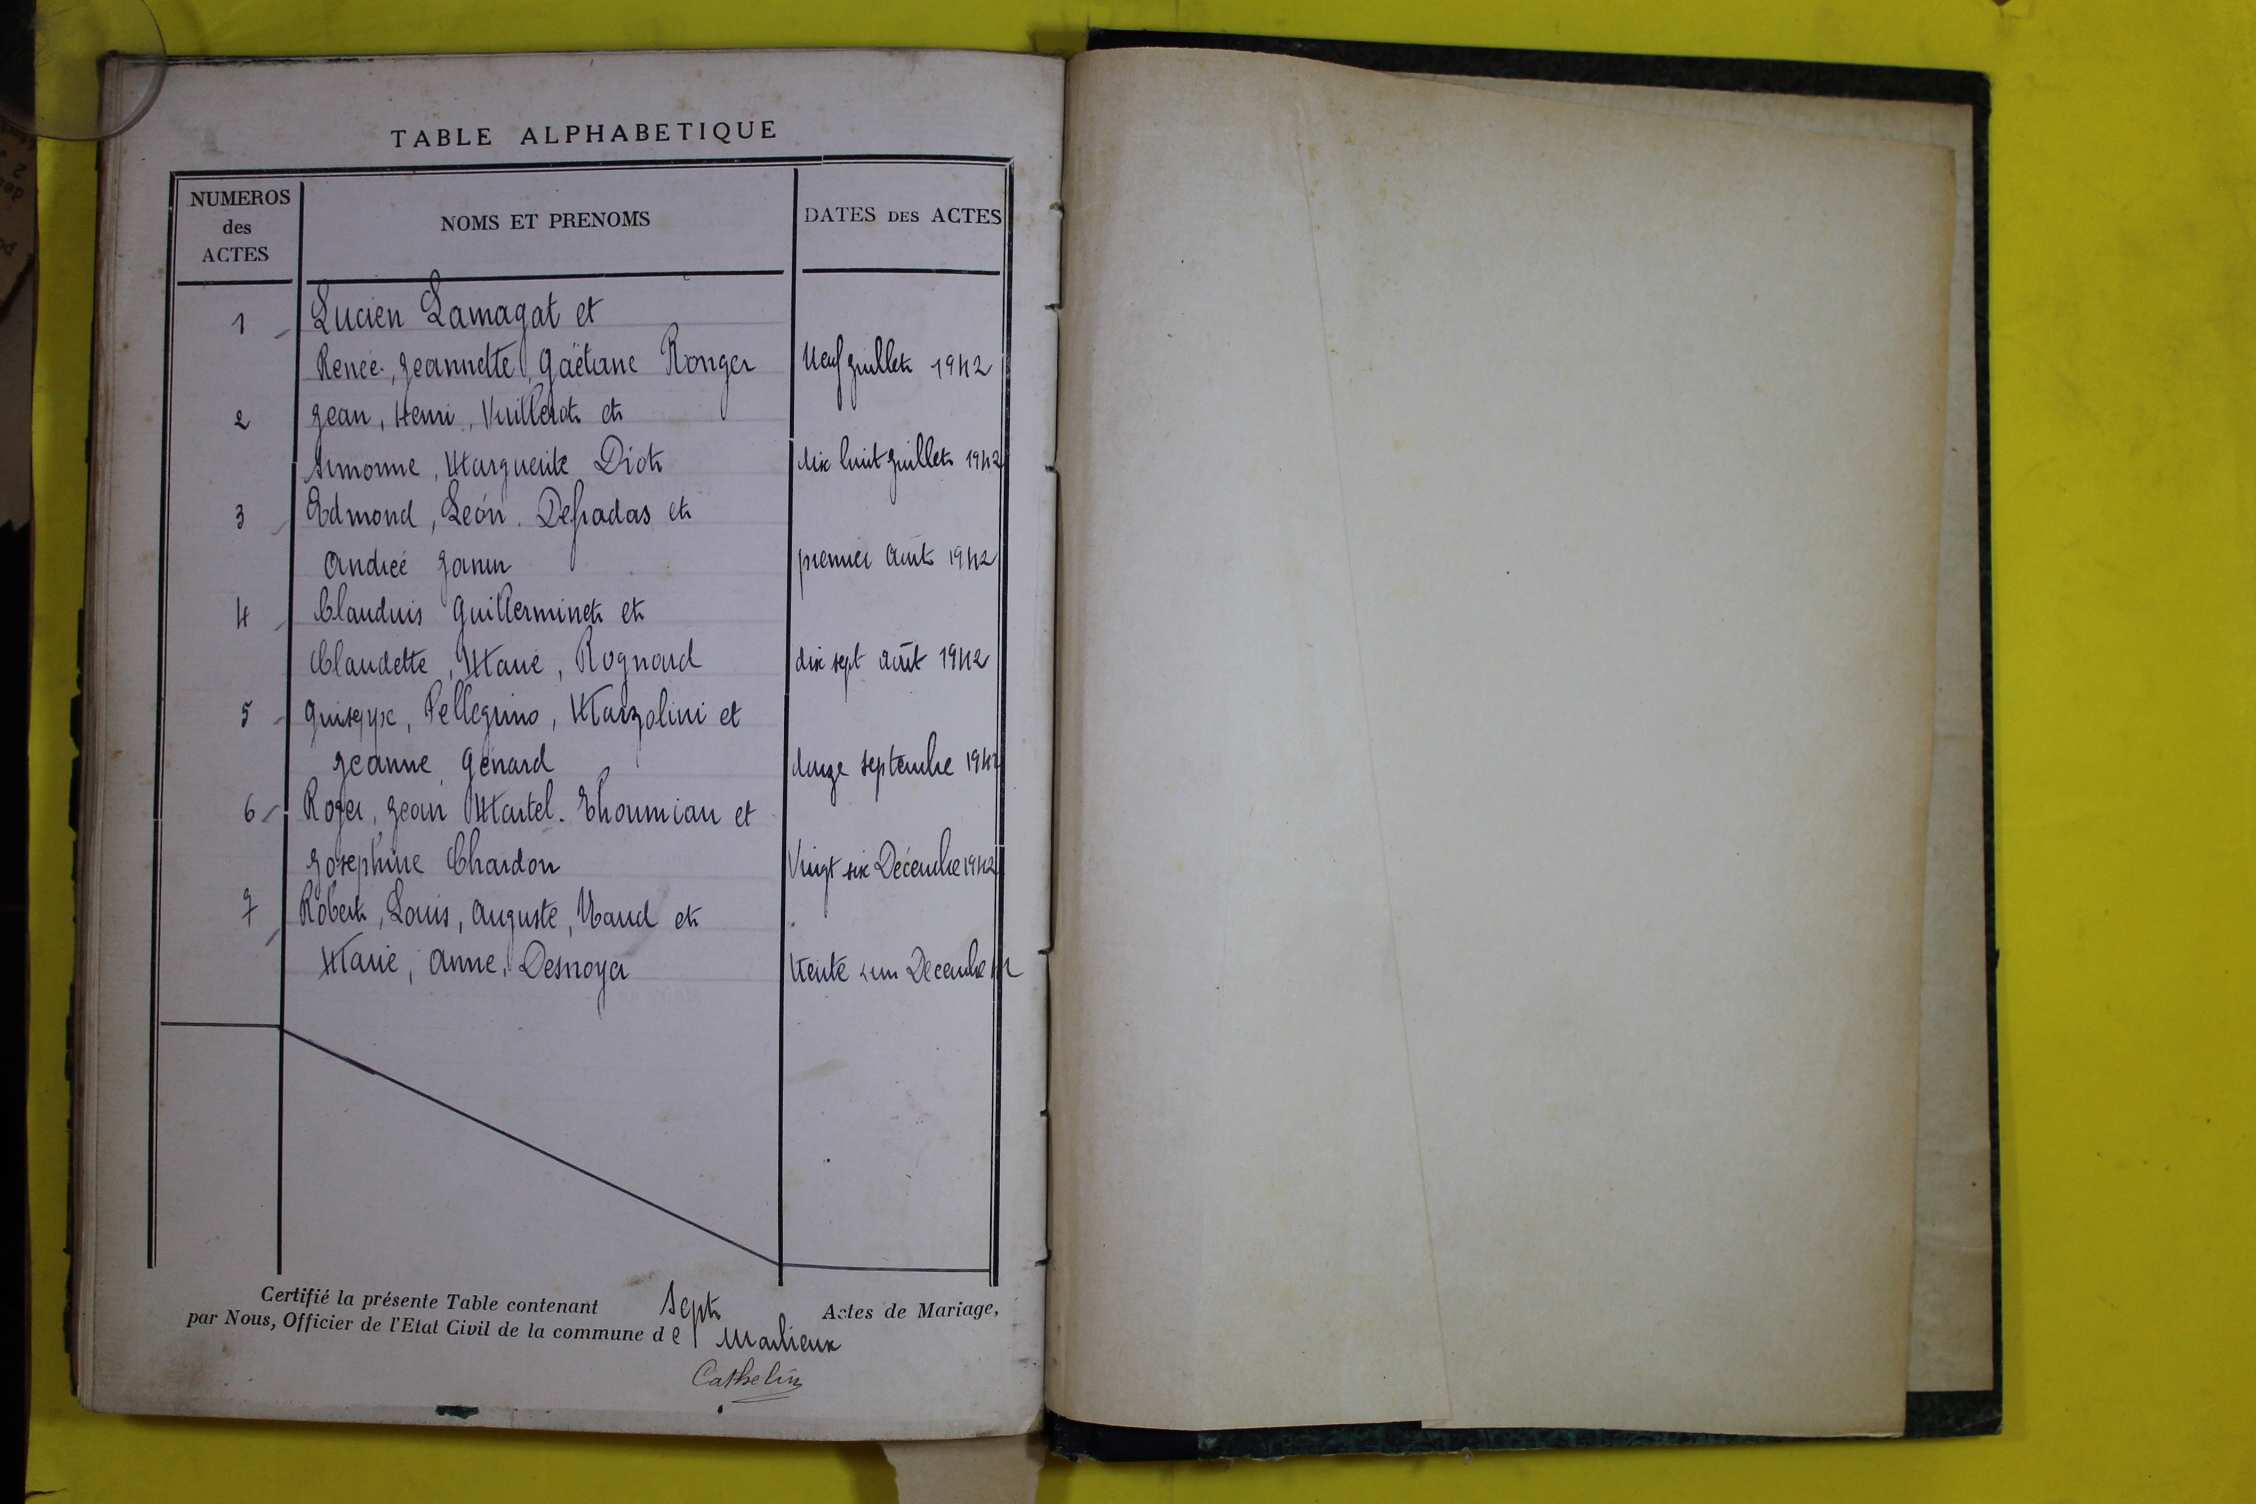 TABLE ALPHABETIQUE
NUMEROS des ACTES
NOMS ET PRENOMS
DATES DES ACTES
1 Lucien Lamagat et
Renée, Jeannette, Gaëtane Ronger Neuf Juillet 1942
2 Jean, Henri, Vuillerot et
Simonne, Marguerite Diot dix huit Juillet 1942
3 Edmond, Léon. Defradas et
Andrée Janin premier Août 1942
4 Claudius Guillerminet et
Claudette, Marie, Rognard dix sept Août 1942
5 Guiseppe, Pellegrino, Marzolini et
Jeanne Génard douze septembre 1942
6 Roger, Jean Martel. Thoumian et
Josephine Chardon Vingt six Décembre 1942
7 Robert, Louis, Auguste, Naud et
Marie, Anne, Desnoyer trente un Décembre 42
Certifié la présente Table contenant Sept Actes de Mariage,
par Nous, Officier de l'Etat Civil de la commune de Marlieux
Cathelin